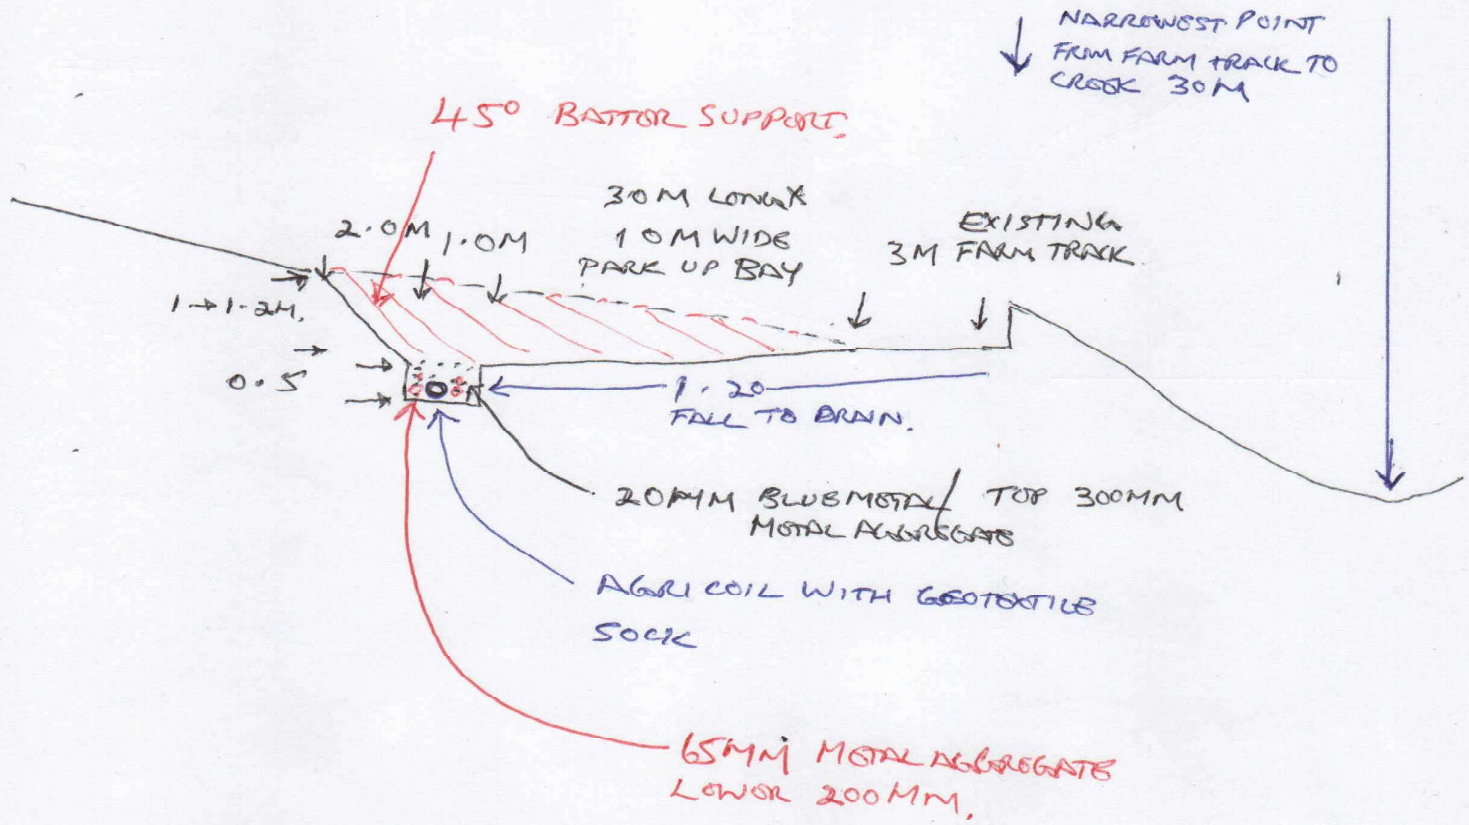 NARROWEST POINT
FROM FARM TRACK TO
CREEK 30M
45° BATTOR SUPPORT.
30M LONG X
10M WIDE
PARK UP BAY
2.0M
1.0M
EXISTING
3M FARM TRACK
1→1.2M.
0.5
1.20
FALL TO DRAIN.
20MM BLUEMETAL/ TOP 300MM
METAL AGGREGATE
AGRI COIL WITH GEOTEXTILE
SOCK
65MM METAL AGGREGATE
LOWER 200MM.